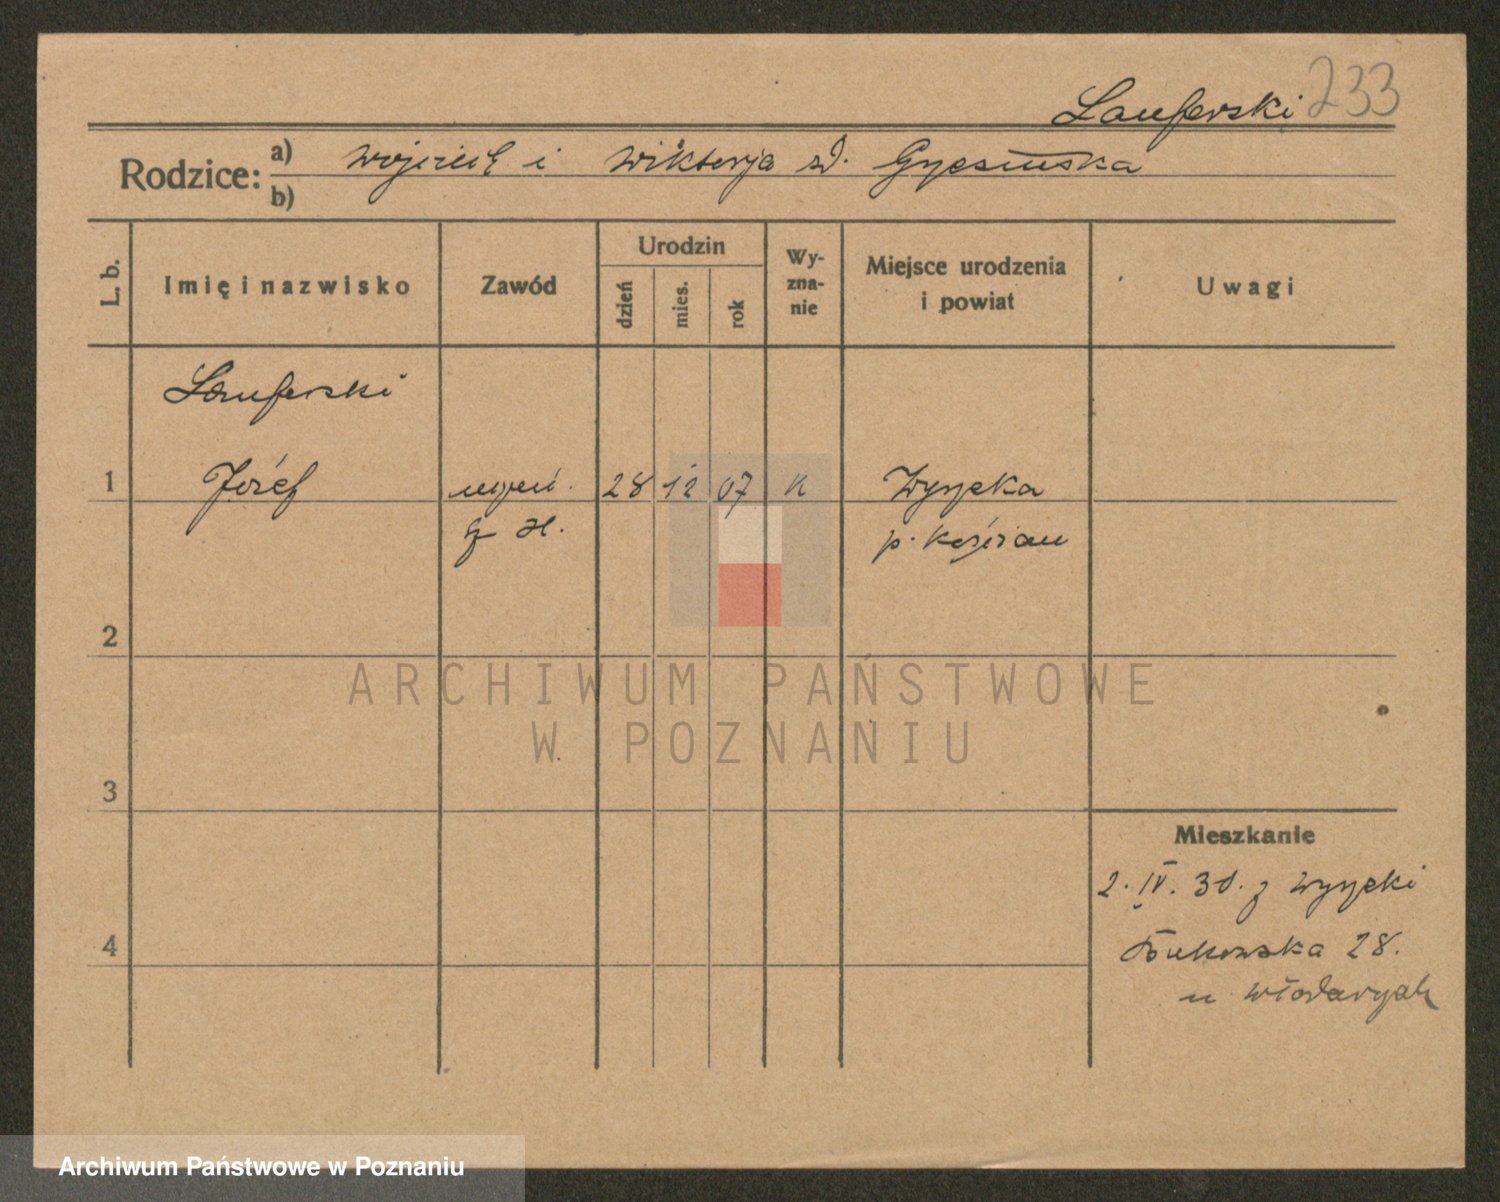 Lauferski 233
Rodzice: a) Wojciech i Wiktorja zd.
b)
L. b.
Imię i nazwisko
Zawód
Urodzin
dzień
mies.
rok
Wy-
zna-
nie
Miejsce urodzenia
i powiat
Uwagi
Lauferski
1 Józef uczeń. 28 12 07 k Wyrzeka
p. Kościan
2
3
4
Mieszkanie
2. IV. 30. z Wyrzeki
Bukowska 28.
u
ARCHIWUM PAŃSTWOWE
W POZNANIU
Archiwum Państwowe w Poznaniu